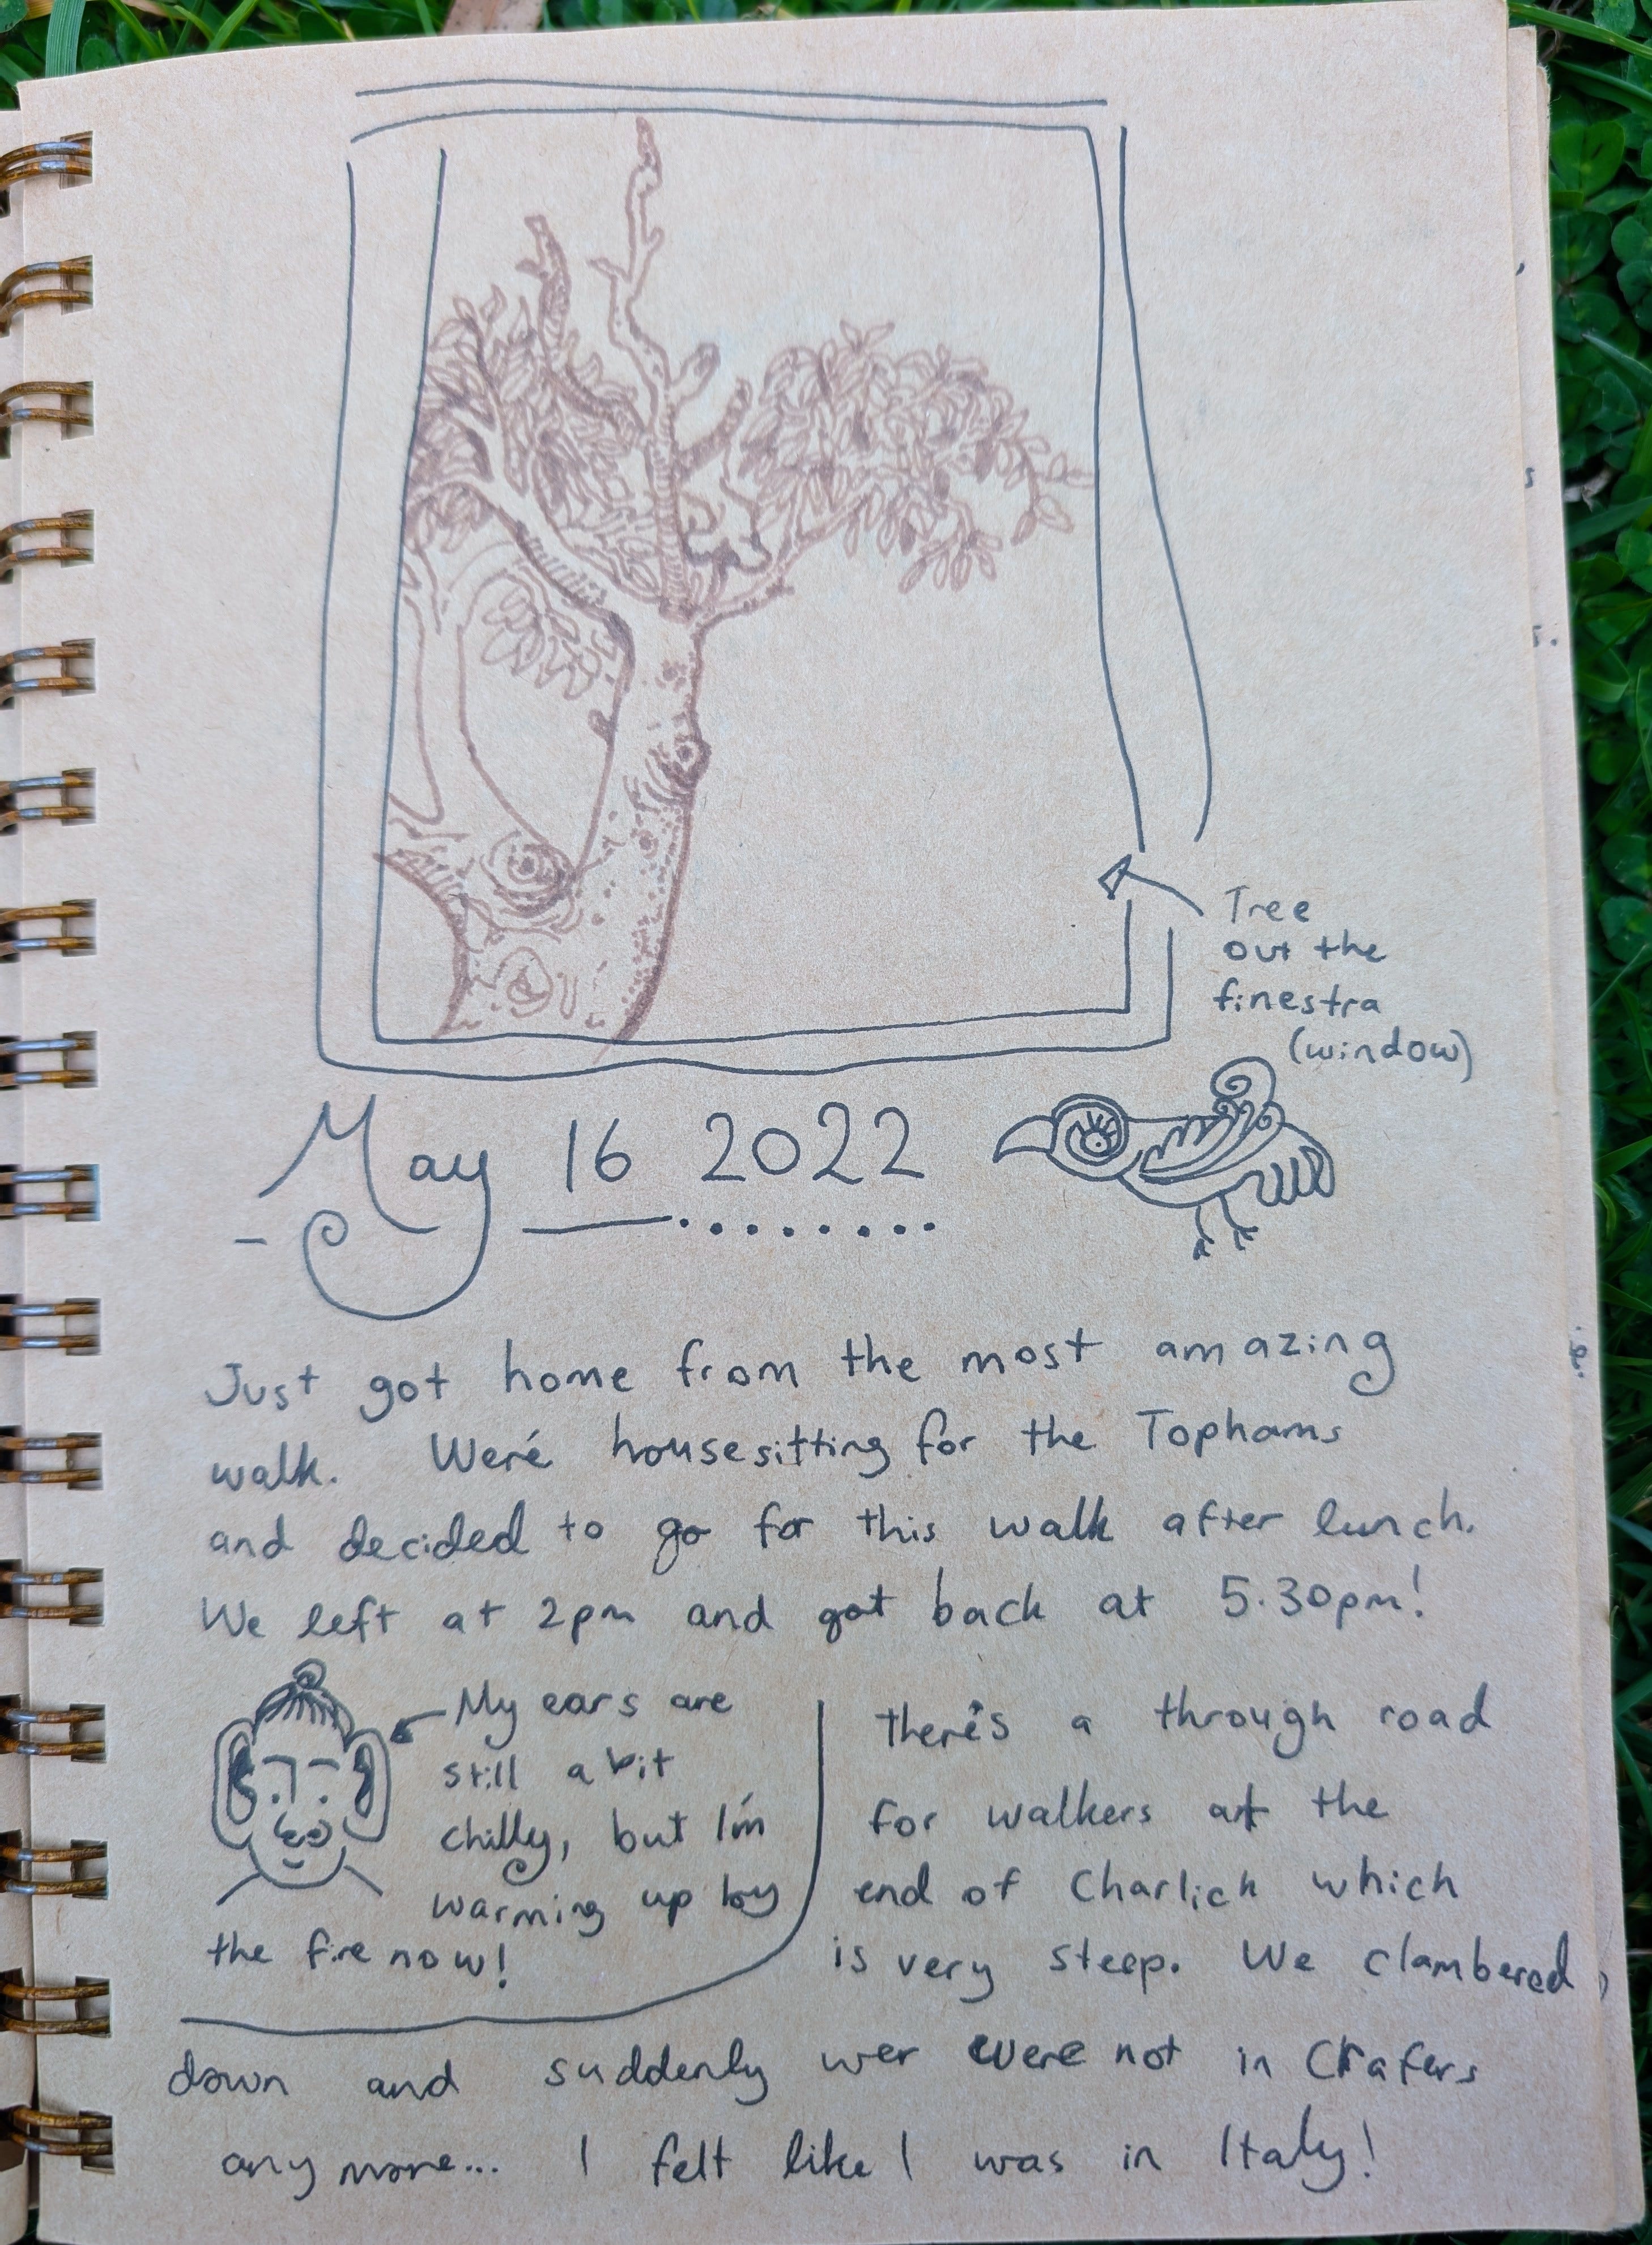 Tree
out the
finestra
(window)
May 16 2022
Just got home from the most amazing
walk. We're housesitting for the Tophams
and decided to go for this walk after lunch.
We left at 2pm and got back at 5.30pm!
My ears are
still a bit
chilly, but I'm
warming up by
the fire now!
there's a through road
for walkers at the
end of Charlick which
is very steep. We clambered
down and suddenly wer were not in Crafers
anymore... I felt like I was in Italy!